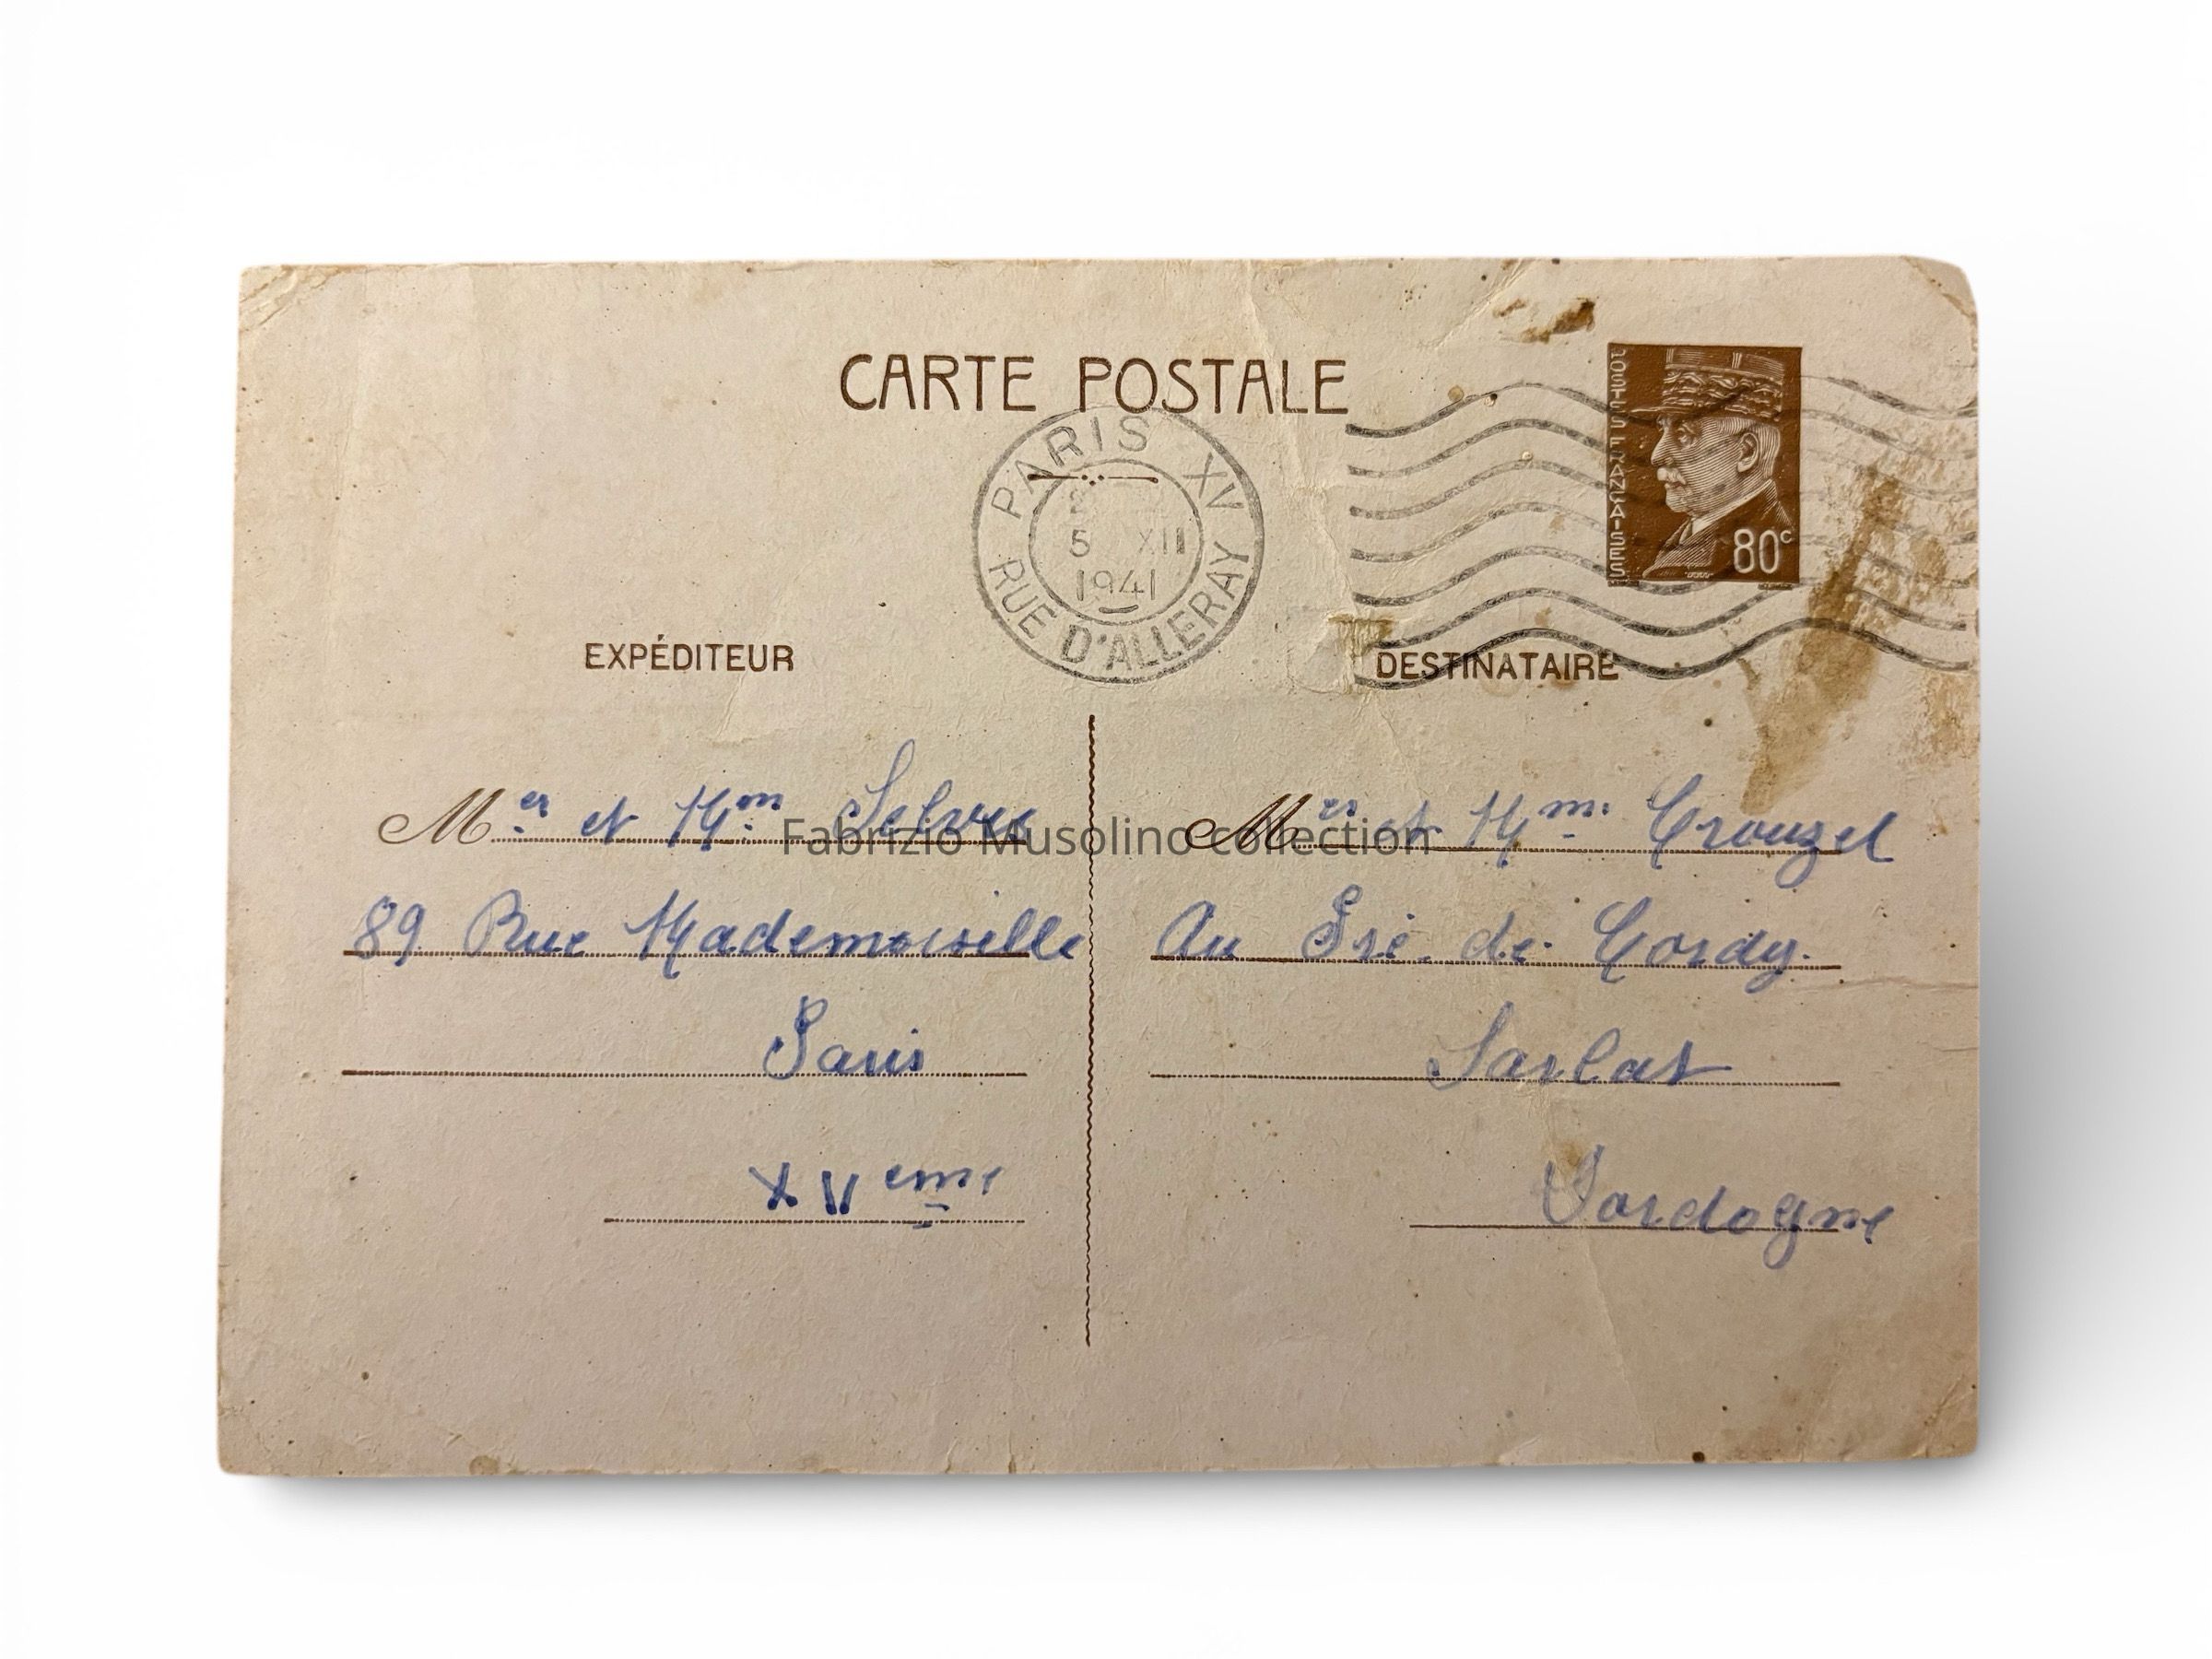 CARTE POSTALE
PARIS XV
5 XII
1941
RUE D'ALLERAY
POSTES FRANÇAISES
80c
EXPÉDITEUR
DESTINATAIRE
Mer et Mm
89 Rue Mademoiselle
Paris
XVeme
Mer et Mm. Crouzel
Au Pré. de Cordy.
Sarlat
Dordogne
Fabrizio Musolino collection